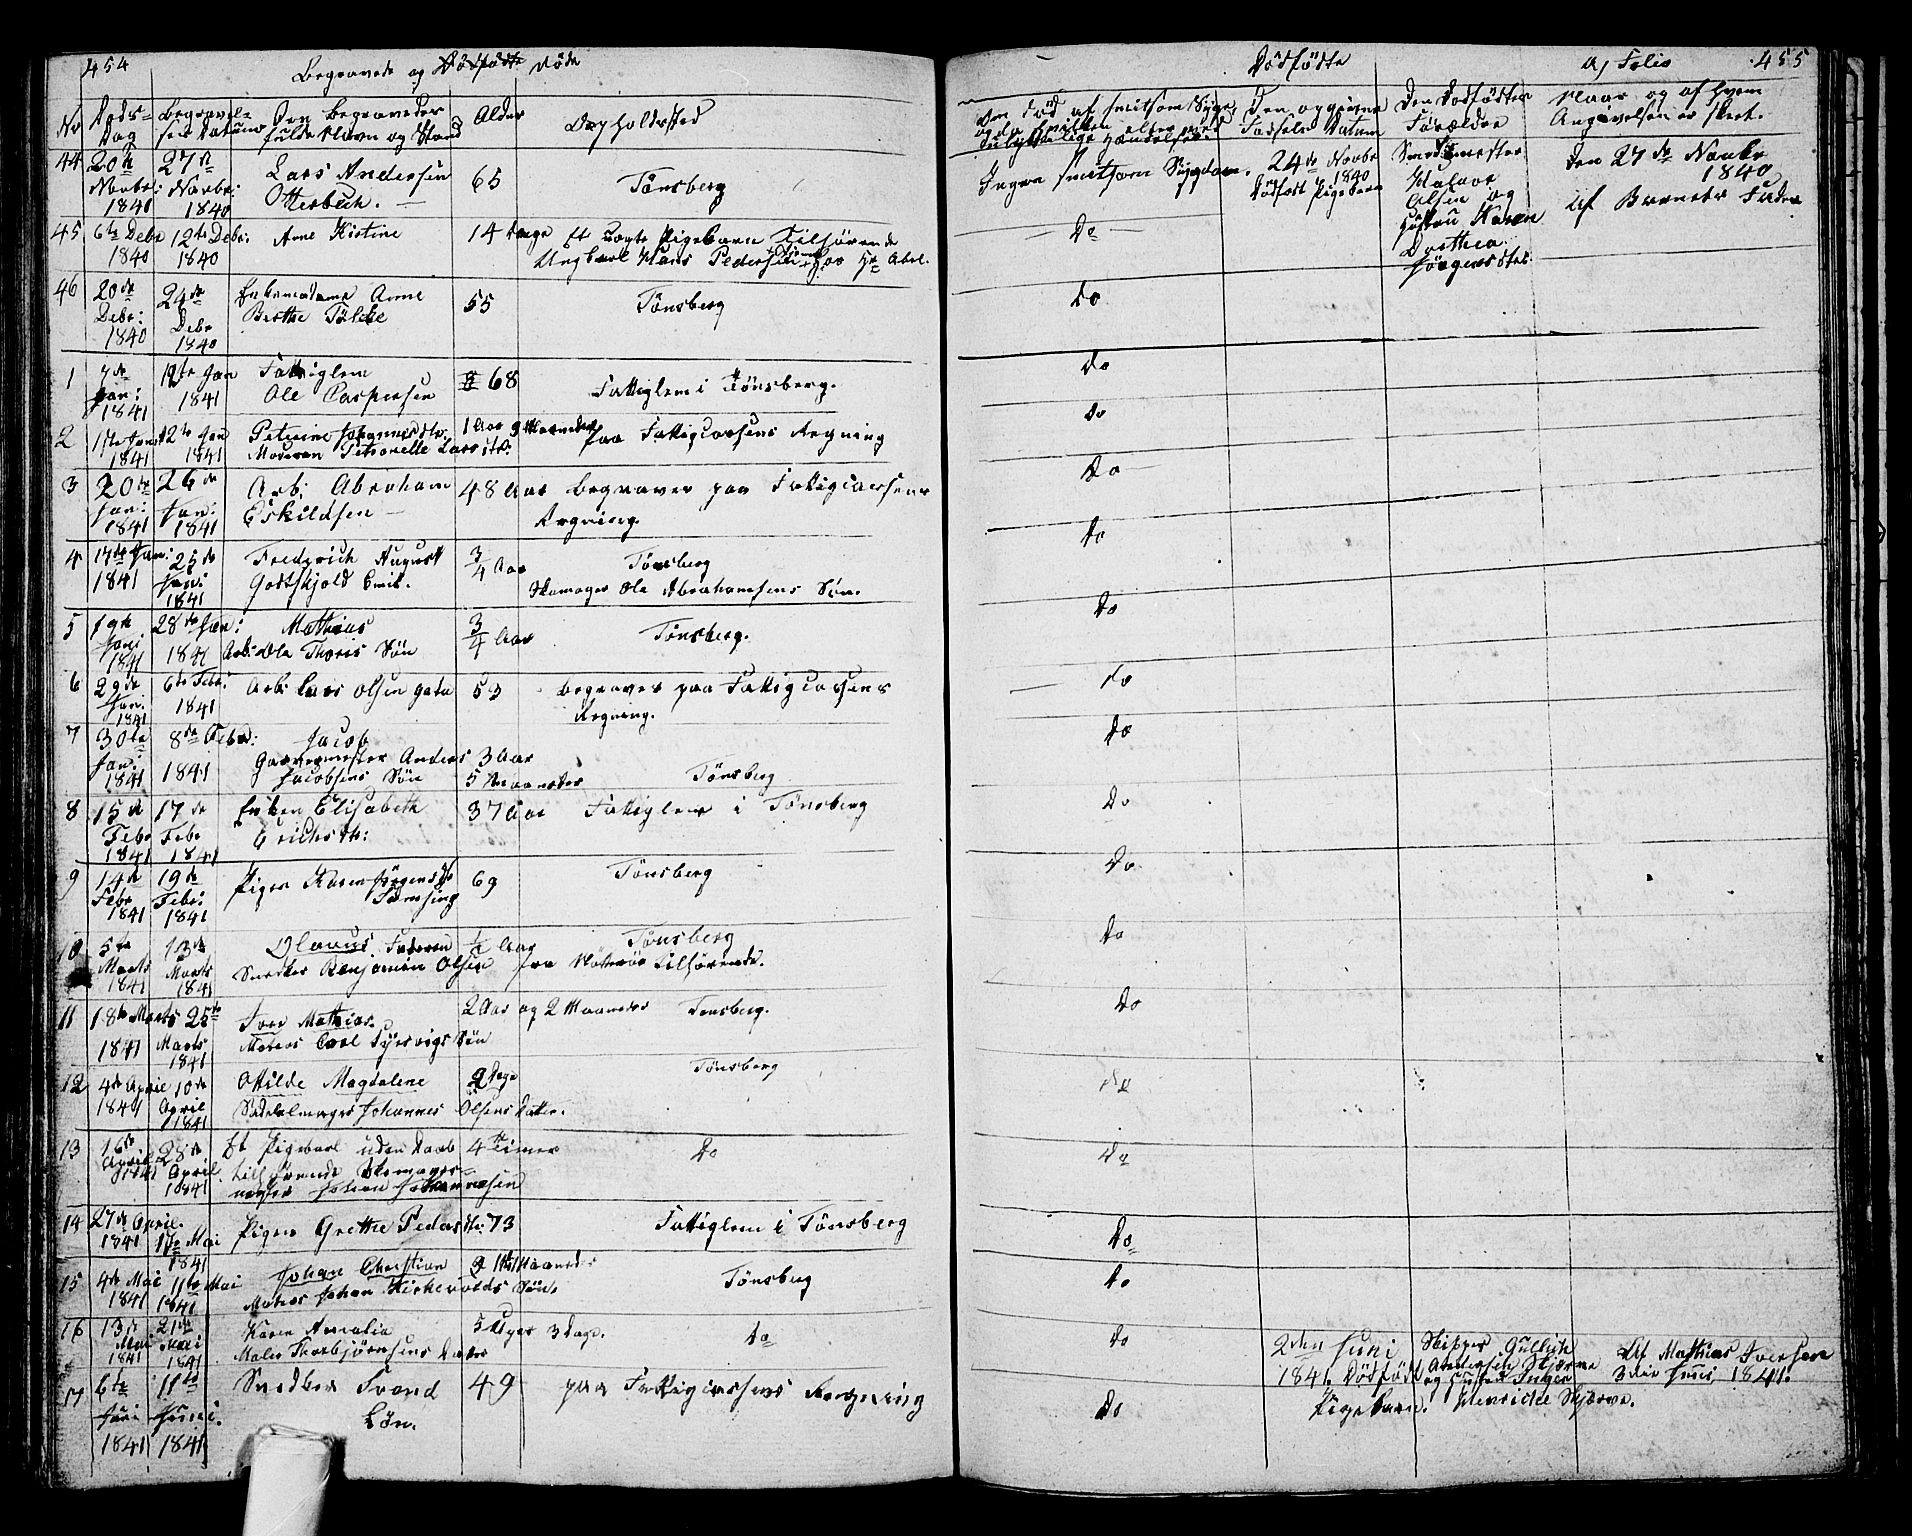 454
Begravede og Dødfødte Døde
Nr Døds= Dag
Begravel= ses Datum
Den Begravedes fulde Navn og Stand
Alder
Opholdssted
44 20de Novbr: 1840 27de Novbr: 1840 Lars Andersen 65 Tønsberg
Otterbech.
45 6te Debr 1840 12te Debr. 1840 Anne Kirstine 14 Dage Et uægte Pigebarn Tilhørende
Ungkarl Hans Pedersen
46 20de Debr: 1840 24de Debr 1840 Enkemadame Anne 55 Tønsberg
Berthe
1 7de Jan: 1841 12te Jan 1841 Fattiglem 68 Fattiglem i Tønsberg.
Ole Caspersen
2 1841 12te Jan 1841 Petrine Johannesdtr: 1 Aar 9 Maaneder paa Fattigcassens Regning
Moderen Petronelle Larsdtr.
3 20de Jan: 1841 26de Jan: 1841 Arb: Abraham 48 Aar Begraves paa Fattigcassens
Eskildsen Regning.
4 17de Jan: 1841 25de Jan: 1841 Frederich August 3/4 Aar Tønsberg
Gottskjold Emil. Skomager Ole Abrahamsens Søn.
5 19de Jan: 1841 28de Jan: 1841 Mathias 3/4 Aar Tønsberg.
Arb: Ole Thoris Søn
6 29de Jan: 1841 6te Febr: 1841 Arb: Lars Olsen 53 Begraves paa Fattigcassens
Regning.
7 30te Jan: 1841 8de Febr: 1841 Jacob
Garvermester Anders 3 Aar
Jacobsens Søn 5 Maaneder Tønsberg
8 15de Febr 1841 17de Febr 1841 Enken Elisabeth 37 Aar Fattiglem i Tønsberg
Erichsdtr:
9 14de Febr 1841 19de Febr: 1841 Pigen Karen Jørgensdtr 69 Tønsberg
10 5te Marts 1841 13de Marts 1841 Olavus. Faderen 1/2 Aar Tønsberg
Snedker Benjamin Olsen fra Nøtterøe tilhørende.
11 18de Marts 1841 25de Marts 1841 Iver Mathias. 2 Aar og 2 Maaneder Tønsberg.
Matros Carl Søn
12 4de April 1841 10de April 1841 Otilde Magdalene 2 Dage Tønsberg
Sadelmager Johannes Olsens Datter.
13 16de April 1841 28de April 1841 Et Pigebarn uden Daab 4 Timer Do
tilhørende Skomager=
mester Johan Johannesen
14 27de April. 1841 1te Mai 1841 Pigen Grethe Pedersdtr: 73 Fattiglem i Tønsberg
15 4de Mai 1841 11te Mai 1841 Johan Christian Maaneder Tønsberg
Matros Johan Kirkevolds Søn.
16 13de Mai 1841 21de Mai 1841 Karen Amalia 5 Uger 3 Dage. Do
Maler Thorbjørnsens Datter
17 6te Juni 1841 11te Juni. 1841 Snedker Svend 49 paa Fattigcassens Regning
Løn.
Dødfødte
Folio 455
Om død af smitsom Syge
og da hvilken eller ved
ulykkelige Hændelser.
Den opgivne Fødsels Datum
Den Dødfødtes Forældre
Naar og af hvem
Angivelsen er skeet.
Ingen smitsom Sygdom. 24de Novbr 1840 Dødfødt Pigebarn
Smedmester
Halvor
Olsen og
Hustru Karen
Dorthea
Jørgensdtr
den 27de Novbr 1840
af Barnets Fader
Do
Do
Do
Do
Do
Do
Do
Do
Do
Do
Do
Do
Do
Do
Do
Do
Do
Do
Do
2den Juni 1841. Dødfødt Pigebarn.
Skipper Gullich
Andersen Skjærve
og Hustru Inger
Henricke Skjærve.
Af Mathias Iversen
3die Juni 1841.